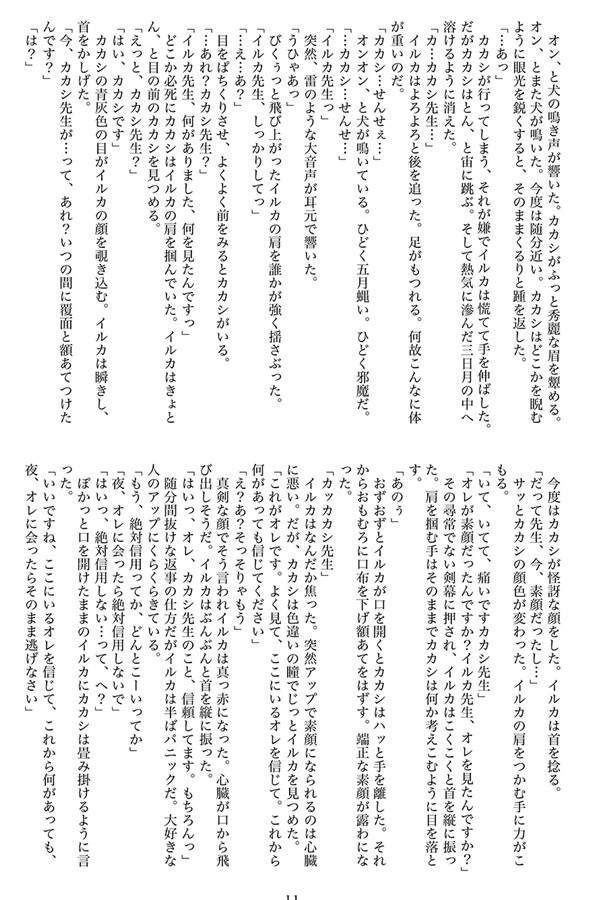 オン、と犬の鳴き声が響いた。カカシがふっと秀麗な眉を顰める。
オン、とまた犬が鳴いた。今度は随分近い。カカシはどこかを睨む
ように眼光を鋭くすると、そのままくるりと踵を返した。
「…あっ」
　カカシが行ってしまう、それが嫌でイルカは慌てて手を伸ばした。
だがカカシはとん、と宙に跳ぶ。そして熱気に滲んだ三日月の中へ
溶けるように消えた。
「カ…カカシ先生…」
　イルカはよろよろと後を追った。足がもつれる。何故こんなに体
が重いのだ。
「カカシ…せんせぇ…」
　オンオン、と犬が鳴いている。ひどく五月蠅い。ひどく邪魔だ。
「…カカシ…せんせ…」
「イルカ先生っ」
　突然、雷のような大音声が耳元で響いた。
「うひゃあっ」
　びくぅっと飛び上がったイルカの肩を誰かが強く揺さぶった。
「イルカ先生、しっかりしてっ」
「…え…あ？」
　目をぱちくりさせ、よくよく前をみるとカカシがいる。
「…あれ？カカシ先生？」
「イルカ先生、何がありました、何を見たんですっ」
　どこか必死にカカシはイルカの肩を掴んでいた。イルカはきょと
ん、と目の前のカカシを見つめる。
「えっと、カカシ先生？」
「はい、カカシです」
　カカシの青灰色の目がイルカの顔を覗き込む。イルカは瞬きし、
首をかしげた。
「今、カカシ先生が…って、あれ？いつの間に覆面と額あてつけた
んです？」
「は？」
　今度はカカシが怪訝な顔をした。イルカは首を捻る。
「だって先生、今、素顔だったし…」
　サッとカカシの顔色が変わった。イルカの肩をつかむ手に力がこ
もる。
「いて、いてて、痛いですカカシ先生」
「オレが素顔だったんですか？イルカ先生、オレを見たんですか？」
　その尋常でない剣幕に押され、イルカはこくこくと首を縦に振っ
た。肩を掴む手はそのままでカカシは何か考えこむように目を落と
す。
「あのぅ」
　おずおずとイルカが口を開くとカカシはハッと手を離した。それ
からおもむろに口布を下げ額あてをはずす。端正な素顔が露わにな
った。
「カッカカシ先生」
　イルカはなんだか焦った。突然アップで素顔になられるのは心臓
に悪い。だが、カカシは色違いの瞳でじっとイルカを見つめた。
「これがオレです。よく見て、ここにいるオレを信じて。これから
何があっても信じてください」
「え？あ？そっそりゃもう」
　真剣な顔でそう言われイルカは真っ赤になった。心臓が口から飛
び出しそうだ。イルカはぶんぶんと首を縦に振った。
「はいっ、オレ、カカシ先生のこと、信頼してます。もちろんっ」
　随分間抜けな返事の仕方だがイルカは半ばパニックだ。大好きな
人のアップにくらくらきている。
「もう、絶対信用ってか、どんとこーいってか」
「夜、オレに会ったら絶対信用しないで」
「はいっ、絶対信用しない…って、へ？」
　ぽかっと口を開けたままのイルカにカカシは畳み掛けるように言
った。
「いいですね、ここにいるオレを信じて、これから何があっても、
夜、オレに会ったらそのまま逃げなさい」
11